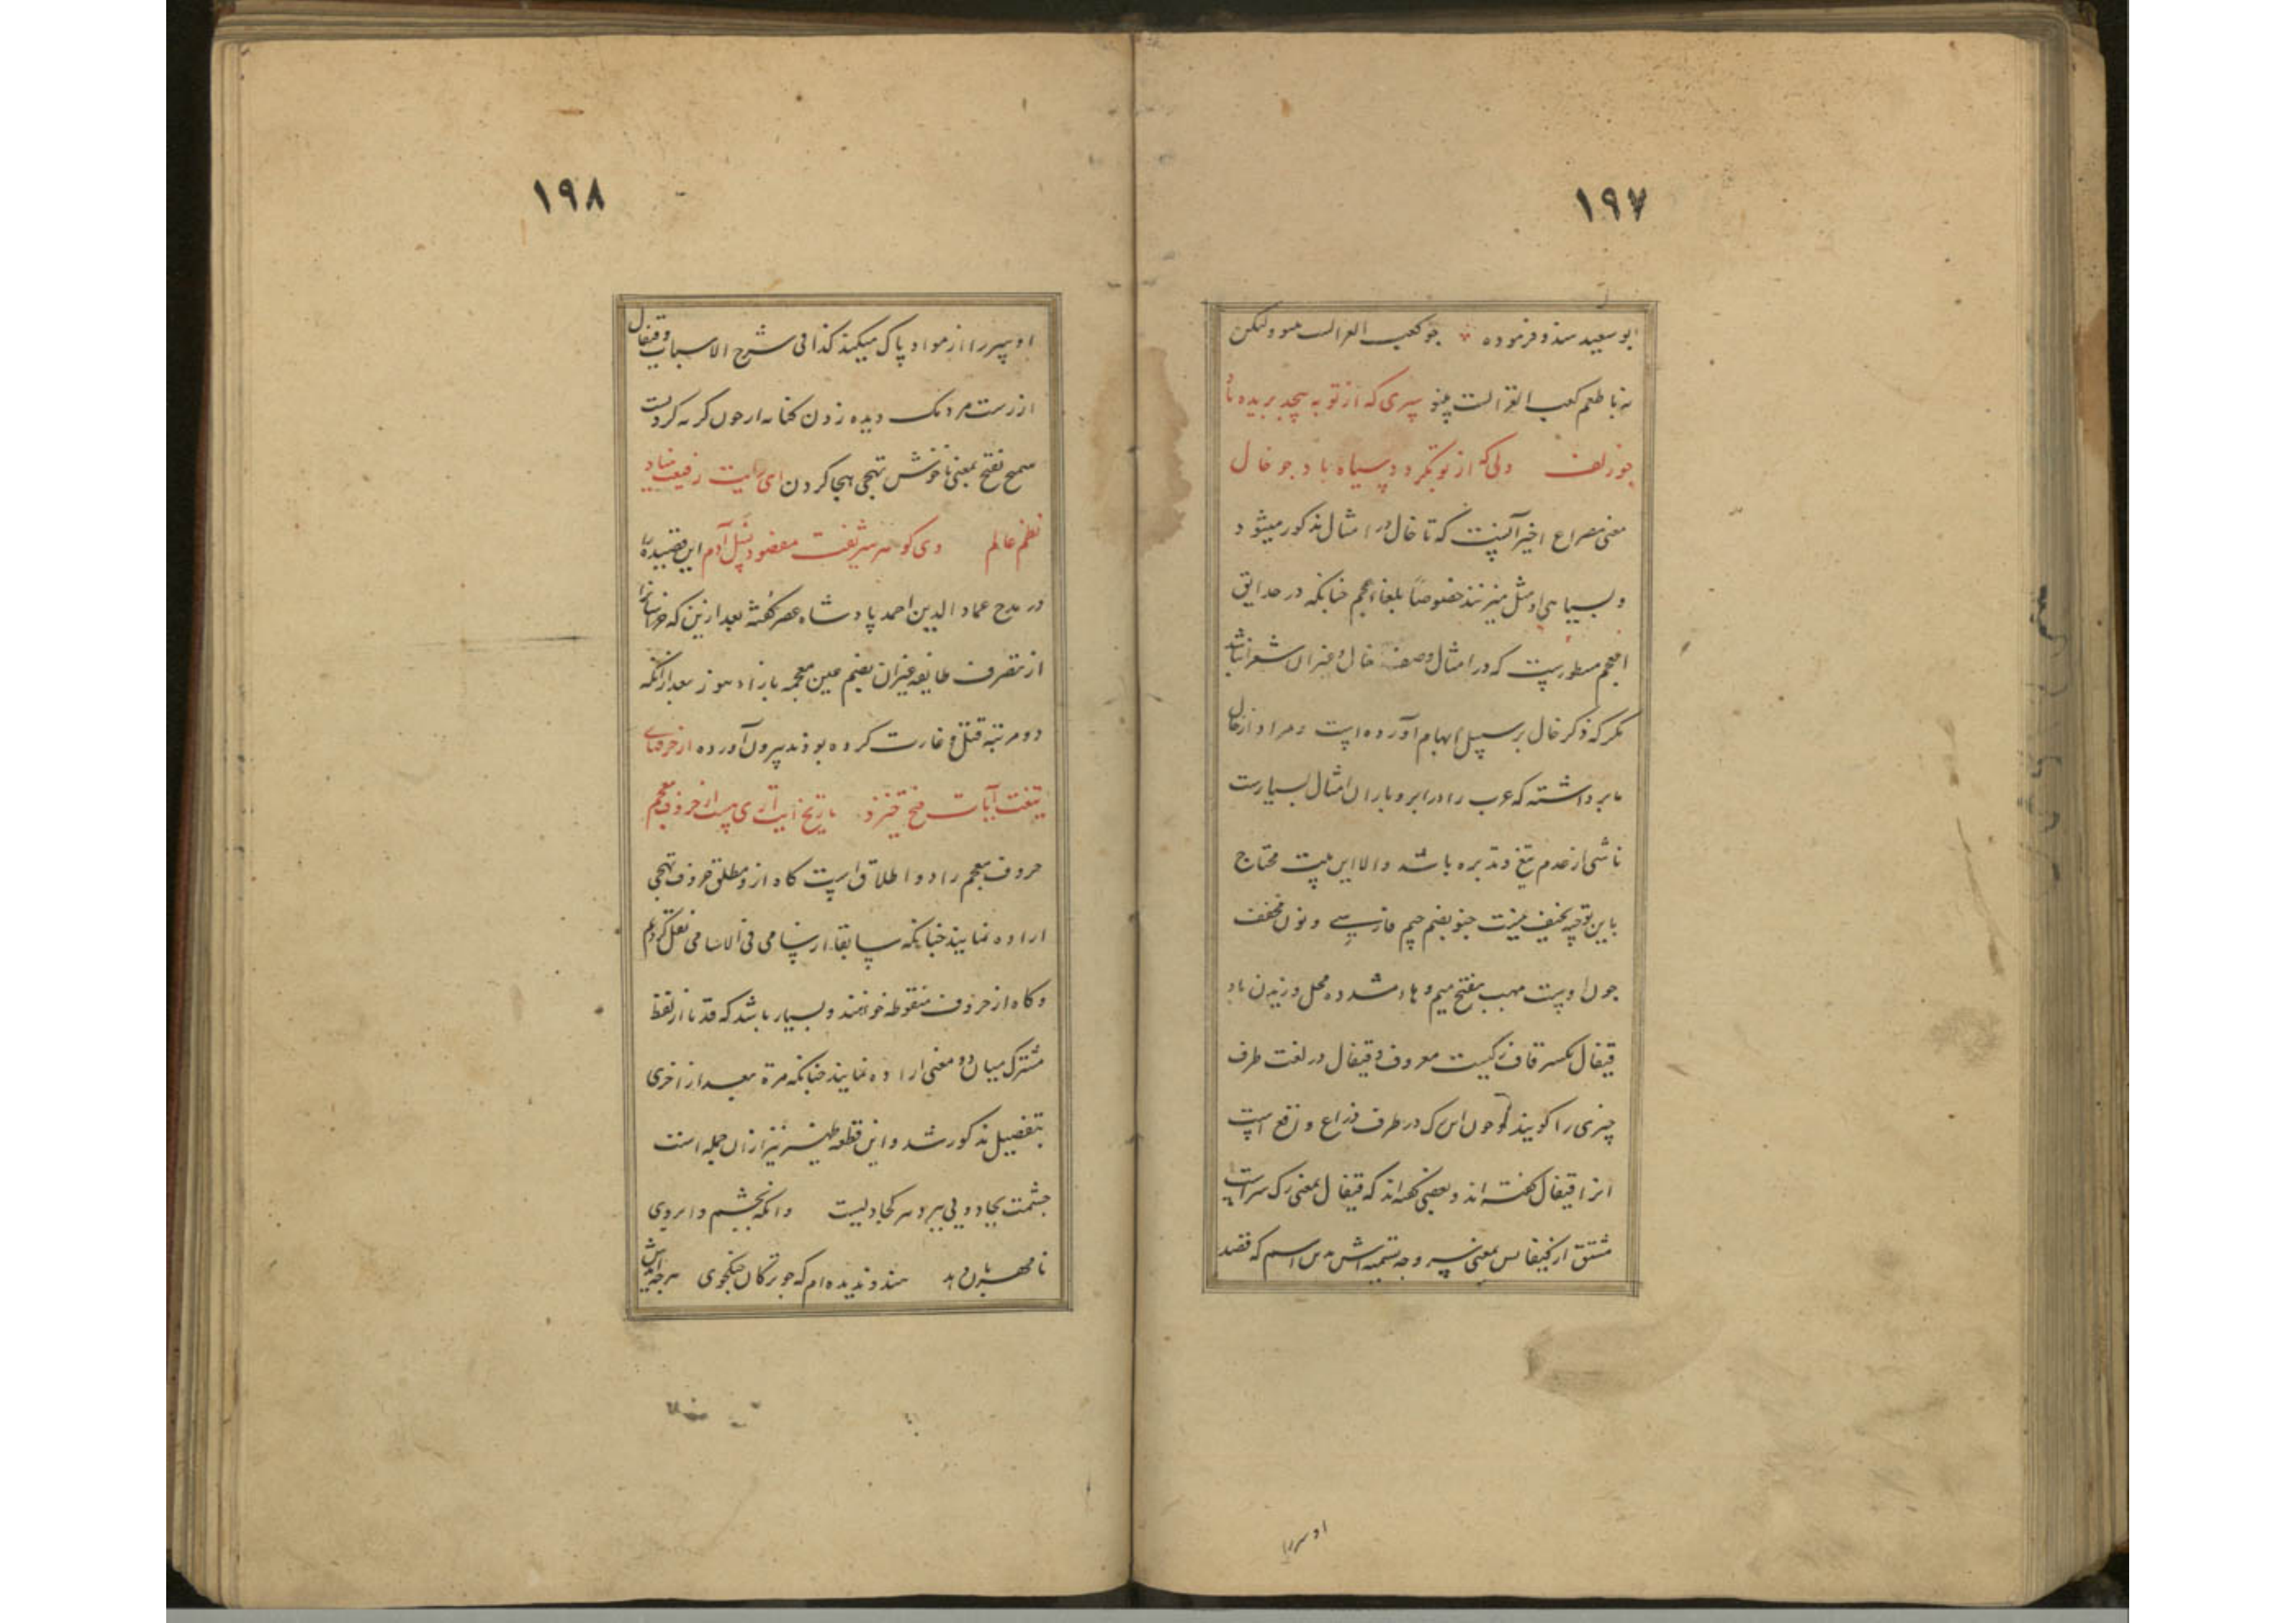 ١٩٧
ابو سعید هندو فرموده جو کعب الغزالست هندو ولیکن
نه با طعم کعب الغزالست چنو سری که از تو بپیچد بریده باد
چو زلف دلی که از تو بگردد سیاه باد جو خال
معنی مصراع اخیر آنست که تا خال در امثال مذکور میشود
و بسیاهی او مثل میزنند خصوصاً بلغاء عجم چنانکه در حدایق
المعجم مسطورست که در امثال وصف خال و غیر آن شعرا نباشد
مگر که ذکر خال بر سبیل ایهام آورده است و مراد از خال
ابر داشته که عرب را در ابر و باران امثال بسیارست
ناشی از عدم تتبع و تدبره باشد والا این بیت محتاج
باین توجیه نحیف نیست چنو بضم جیم فارسی و نون مخفف
چون اوست مهب بفتح میم و هاء مشدده محل وزیدن باد
قیفال بکسر قاف رگیست معروف و قیفال در لغت طرف
چیزی را گویند و چون این رگ در طرف ذراع واقع است
انرا قیفال گفته اند و بعضی گفته اند که قیفال بمعنی رگ سر است
مشتق از کیفالس بمعنی سر و وجه تسمیه اش بدین اسم که فصد
او سر را
١٩٨
او سر را از مواد پاک میکند کذا فی شرح الاسباب و قیفال
از رست مردمک دیده زدن کنایه از خون گریه کردنست
سمج بفتح بمعنی ناخوش تهجی هجا کردن ای رایت رفیعت بنیاد
نظم عالم وی گوهر شریفت مقصود نسل آدم این قصیده را
در مدح عماد الدین احمد پادشاه عصر گفته بعد ازین که خراسانرا
از تصرف طایفه غزان بضم غین معجمه باز اد هوز بعد ازانکه
دو مرتبه قتل و غارت کرده بودند بیرون آورده از حرفهای
تیغت آیات فتح خیزد تاریخ این آری هست از حروف معجم
حروف معجم را دو اطلاق است گاه ازو مطلق حروف تهجی
اراده نمایند چنانکه سابقا از سامی فی الاسامی نقل کردیم
و گاه از حروف منقوطه خواهند و بسیار باشد که قدما از لفظ
مشترک میان دو معنی اراده نمایند چنانکه مرة بعد از اخری
بتفصیل مذکور شد و این قطعه ظهیر نیز ازان جمله است
چشمت بجادویی ببرد هر کجا دلیست وانگه بچشم و ابروی
نامهربان دهد هندو ندیده ام که جو ترکان جنگجوی هرچه ایدش